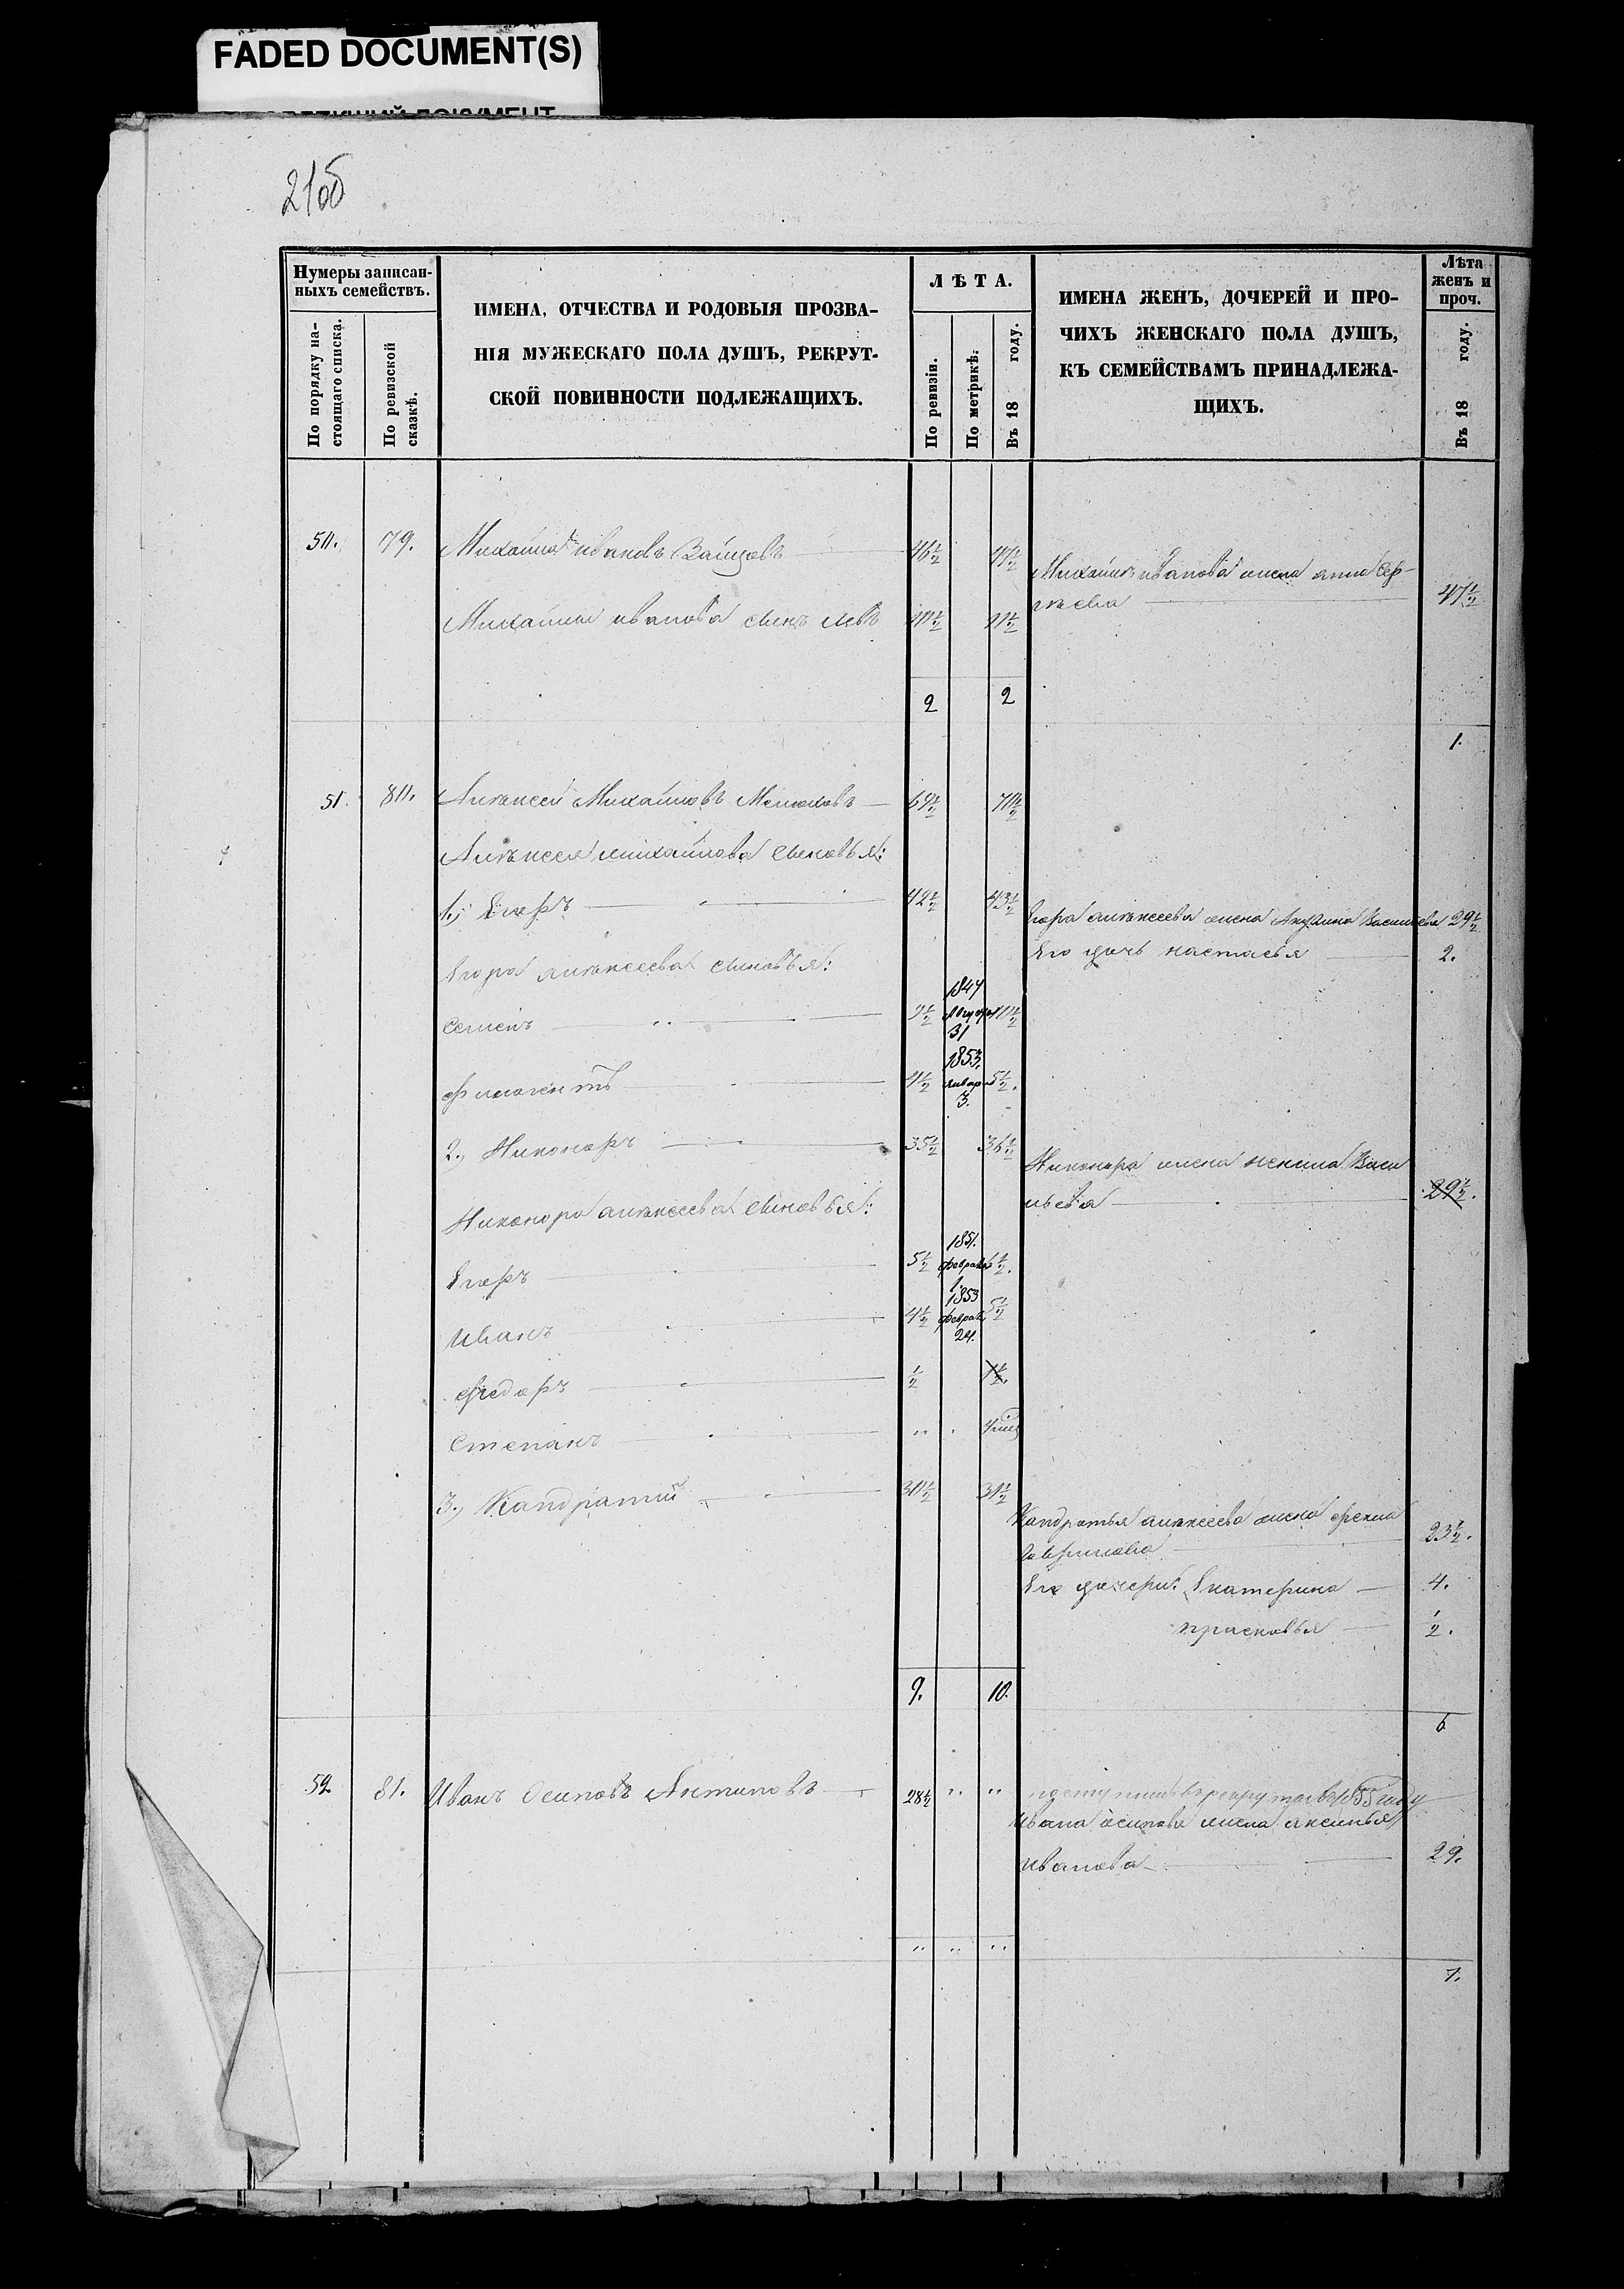 FADED DOCUMENT(S)
21об
Нумеры записан-
ныхъ семействъ.
По порядку на-
стоящаго списка.
По ревизской
сказкѣ.
ИМЕНА, ОТЧЕСТВА И РОДОВЫЯ ПРОЗВА-
НІЯ МУЖЕСКАГО ПОЛА ДУШЪ, РЕКРУТ-
СКОЙ ПОВИННОСТИ ПОДЛЕЖАЩИХЪ.
ЛѢТА.
По ревизіи.
По метрикѣ.
Въ 18 году.
ИМЕНА ЖЕНЪ, ДОЧЕРЕЙ И ПРО-
ЧИХЪ ЖЕНСКАГО ПОЛА ДУШЪ,
КЪ СЕМЕЙСТВАМЪ ПРИНАДЛЕЖА-
ЩИХЪ.
Лѣта
женъ и
проч.
Въ 18 году.
50. 79. Михайла Ивановъ Зайцовъ 46½ 47½
Михайлы иванова жена анна Сер-
гѣева 47½
Михайлы иванова сынъ левъ 20½ 21½
2 2
1.
51. 80. Алексей Михайловъ 69½ 70½
Алексея михайлова сыновья:
1.) Егоръ 42½ 43½
Егора алексеева жена Акулина Васильева 29½
Его дочь настасья 2.
Егора алексеева сыновья:
Семенъ 9½ 1847 31 10½
4½ 1853. январ 3. 5½.
2.) Никоноръ 35½ 36½
Никонора жена Васи
льева 29½.
Никонора алексеева сыновья:
Егоръ 5½ 1851. февраля 1. 6½.
Иванъ 4½ 1853 февраля 24. 5½
Федоръ ½ 1½.
Степанъ " . 4 мец
3.) Кандратий 30½ 31½
Кандратья алексеева жена
Гаврилова 23½.
Его дочери: Екатерина 4.
прасковья ½.
9. 10.
6
52. 81. Иванъ Осиповъ Антиповъ 28½ " "
поступилъ в рекруты в 1855 году
Ивана осипова жена аксинья
иванова 29.
" " "
1.